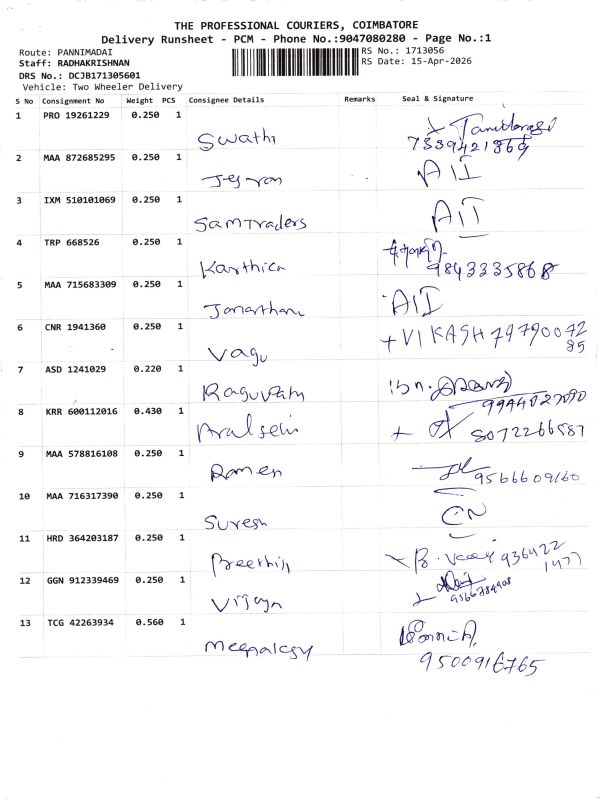 THE PROFESSIONAL COURIERS, COIMBATORE
Delivery Runsheet - PCM - Phone No.:9047080280 - Page No.:1
Route: PANNIMADAI
RS No.: 1713056
Staff: RADHAKRISHNAN
RS Date: 15-Apr-2026
DRS No.: DCJB171305601
Vehicle: Two Wheeler Delivery
S No Consignment No Weight PCS Consignee Details Remarks Seal & Signature
1 PRO 19261229 0.250 1
Swathi 7539421369
2 MAA 872685295 0.250 1
AII
3 IXM 510101069 0.250 1
Samtraders AII
4 TRP 668526 0.250 1
Karthica 9843335868
5 MAA 715683309 0.250 1
AII
6 CNR 1941360 0.250 1
Vagu + VIKASH 79790042
85
7 ASD 1241029 0.220 1
Ragupath
9944027090
8 KRR 600112016 0.430 1
8072266587
9 MAA 578816108 0.250 1
Ramen 9566609160
10 MAA 716317390 0.250 1
Suresh CN
11 HRD 364203187 0.250 1
936422
1477
12 GGN 912339469 0.250 1
Vijaya
13 TCG 42263934 0.560 1
9500916765